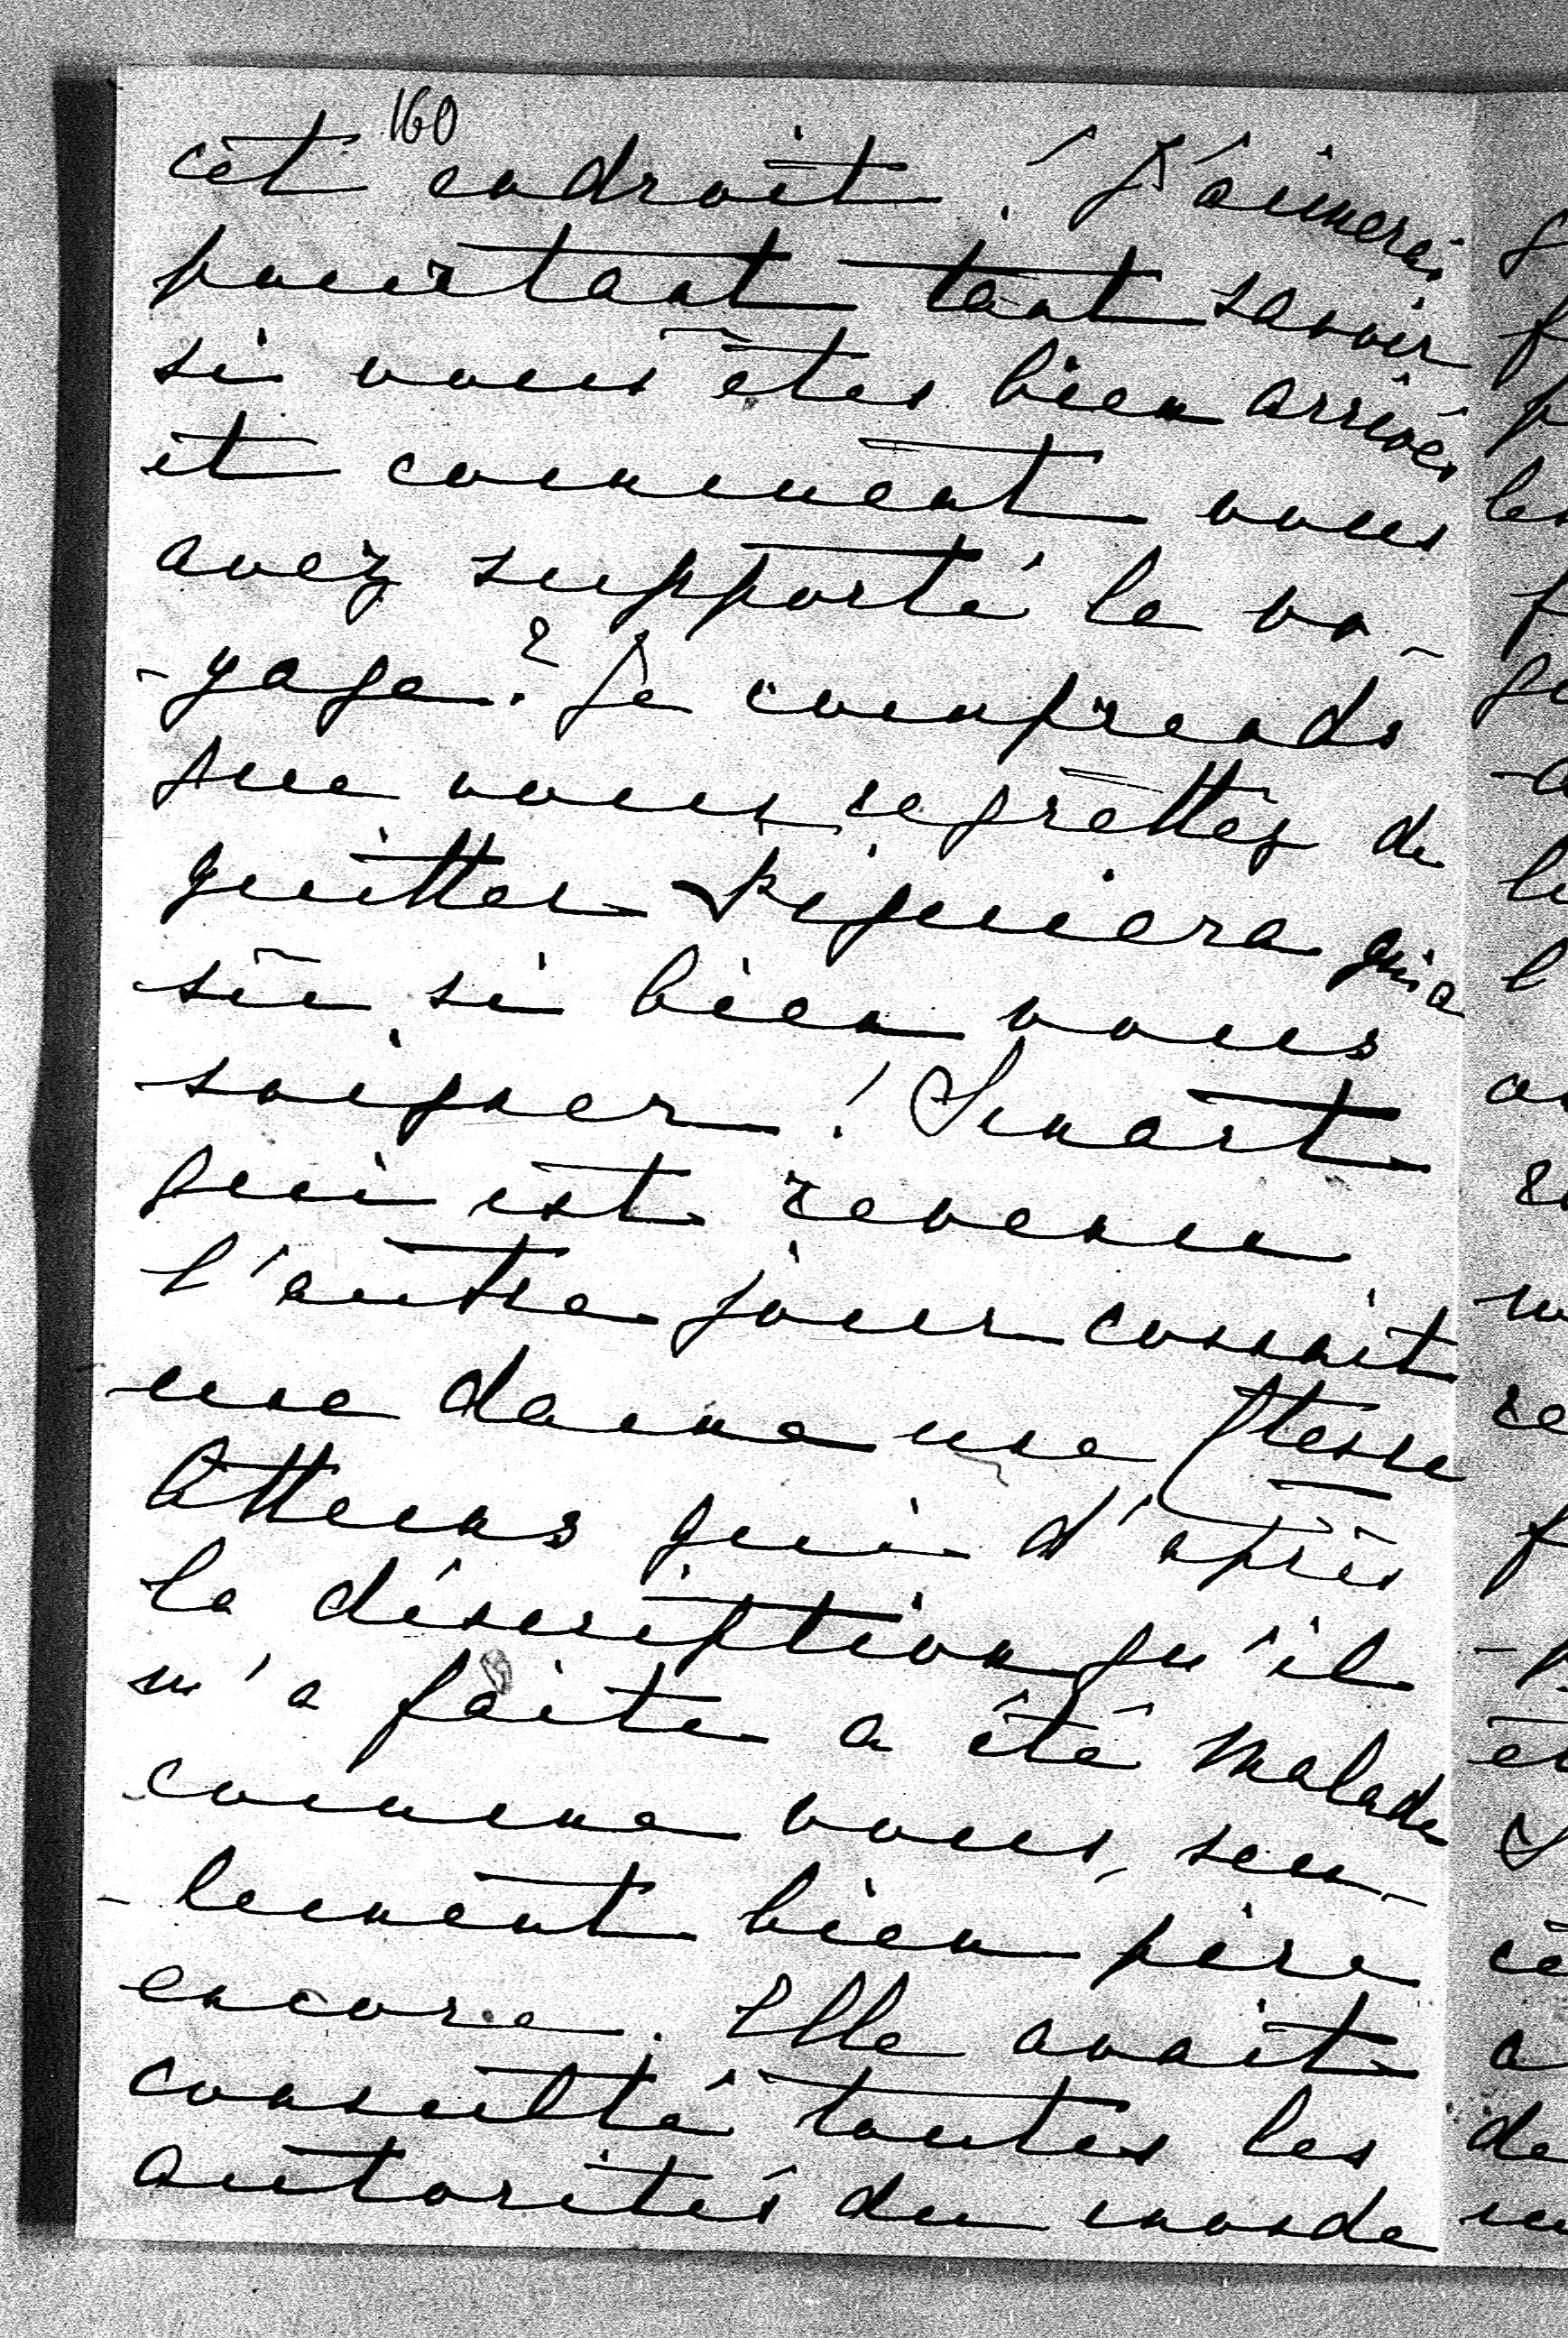 160
cet endroit ! J'aimerais
pourtant tant savoir
si vous êtes bien arrivés
et comment vous
avez supporté le vo-
-yage ? Je comprends
que vous regrettez de
quitter Piguiera qui a
su si bien vous
soigner ! Senart
qui est revenu
l'autre jour connait
une dame une Ctesse
Attems qui d'après
la déscription qu'il
m'a faite a été malade
comme vous, seu-
-lement bien pire
encore. Elle avait
consulté toutes les
autorités du monde